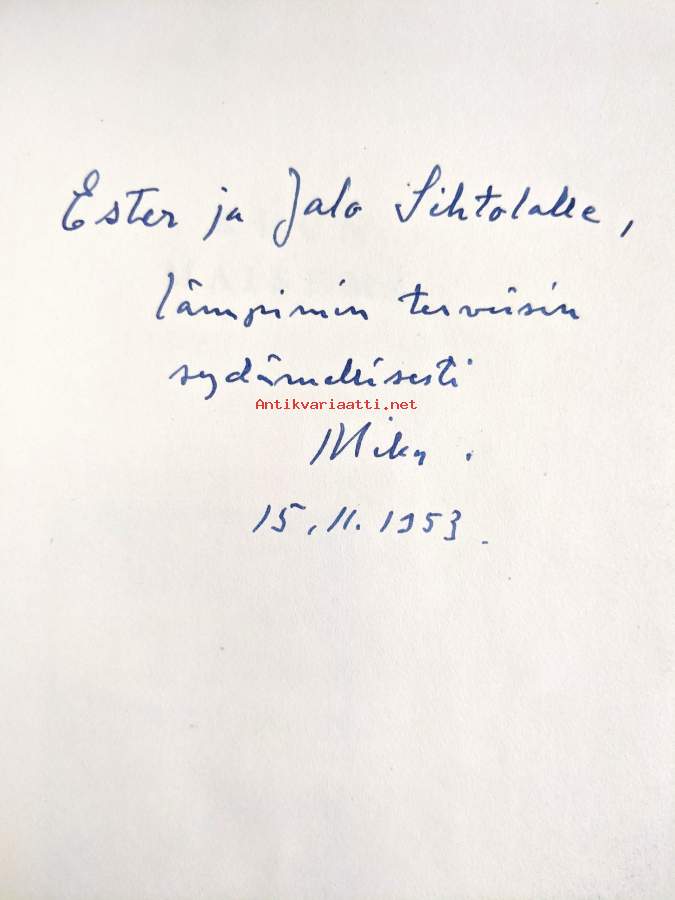 Ester ja Jalo Sihtolalle,
lämpimin terveisin
sydämellisesti
Antikvariaatti.net
Mika.
15.11.1953.